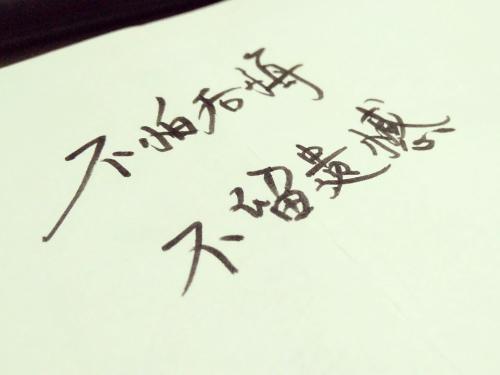 不怕后悔
不留遗憾